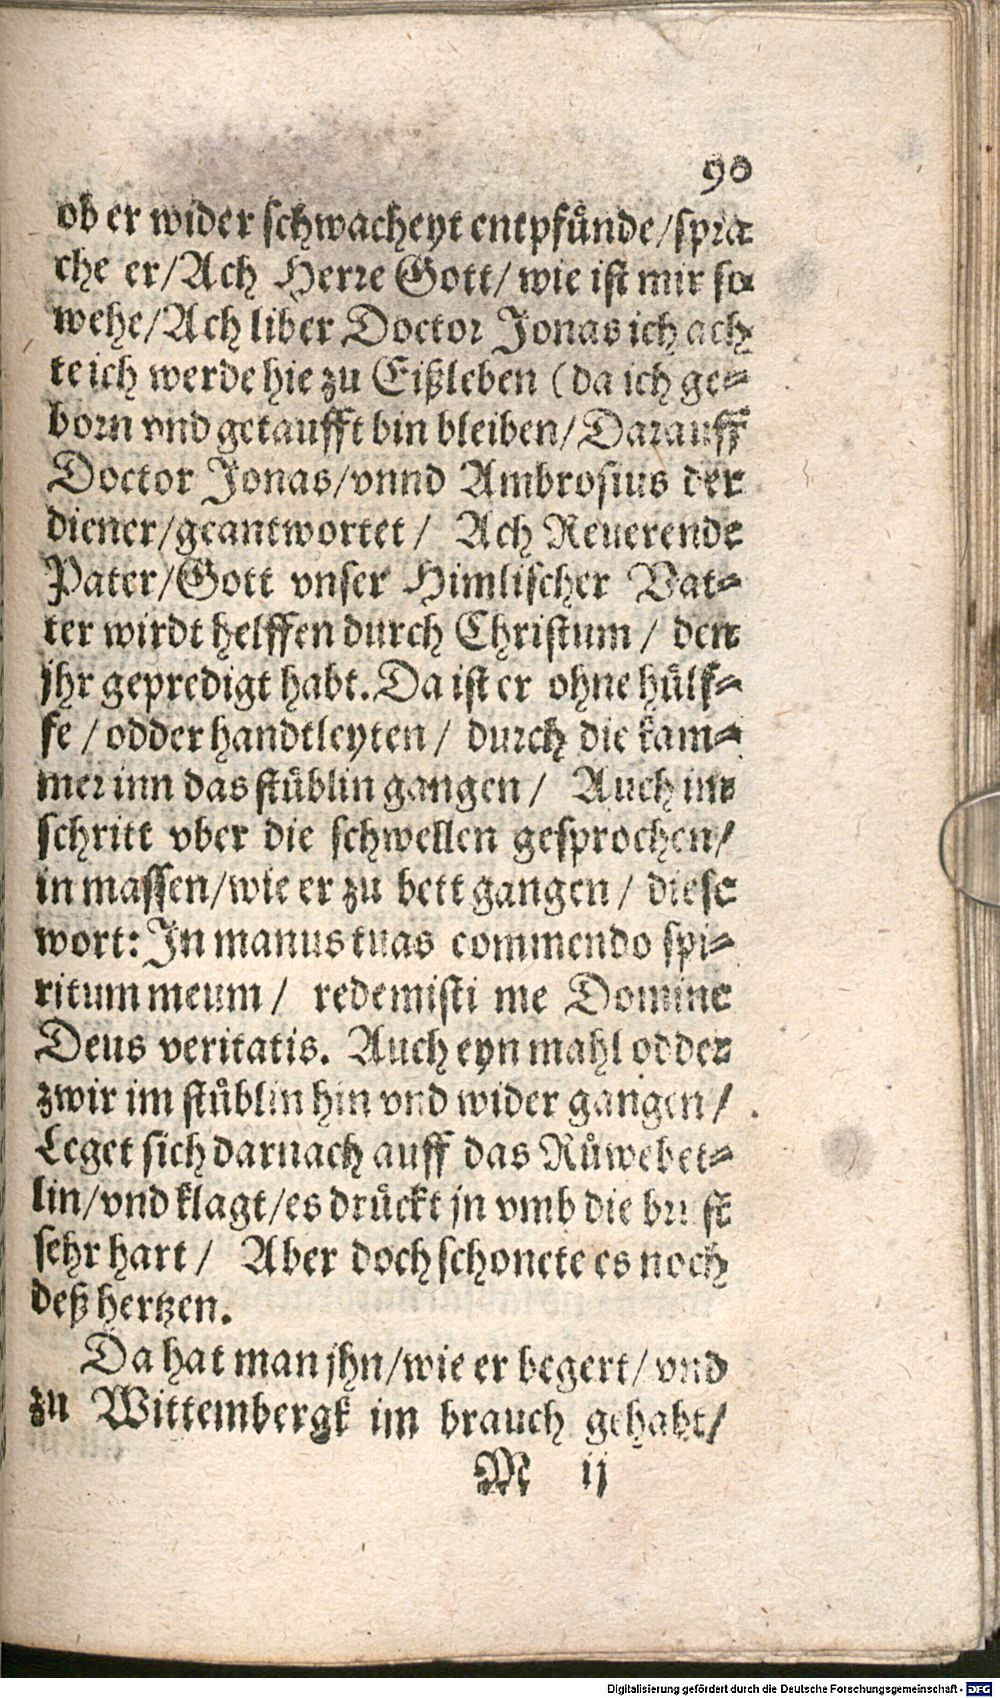 90
ob er wider schwacheyt entpfůnde/spra-
che er/Ach Herre Gott/wie ist mir so
wehe/Ach liber Doctor Jonas ich ach-
te ich werde hie zu Eißleben (da ich ge-
born vnd getaufft bin bleiben/Darauff
Doctor Jonas/vnnd Ambrosius der
diener/geantwortet/ Ach Reuerende
Pater/Gott vnser Himlischer Vat-
ter wirdt helffen durch Christum/ den
jhr gepredigt habt. Da ist er ohne hůlf-
fe/odder handtleyten/ durch die kam-
mer inn das stůblin gangen/ Auch im
schritt vber die schwellen gesprochen/
in massen/wie er zu bett gangen/ diese
wort: In manus tuas commendo spi-
ritum meum/ redemisti me Domine
Deus veritatis. Auch eyn mahl odder
zwir im stůblin hin vnd wider gangen/
Leget sich darnach auff das Růwebet-
lin/vnd klagt/es drůckt jn vmb die brust
sehr hart/ Aber doch schonete es noch
deß hertzen.
Da hat man jhn/wie er begert/vnd
zu Wittembergk im brauch gehabt/
M ij
Digitalisierung gefördert durch die Deutsche Forschungsgemeinschaft - DFG